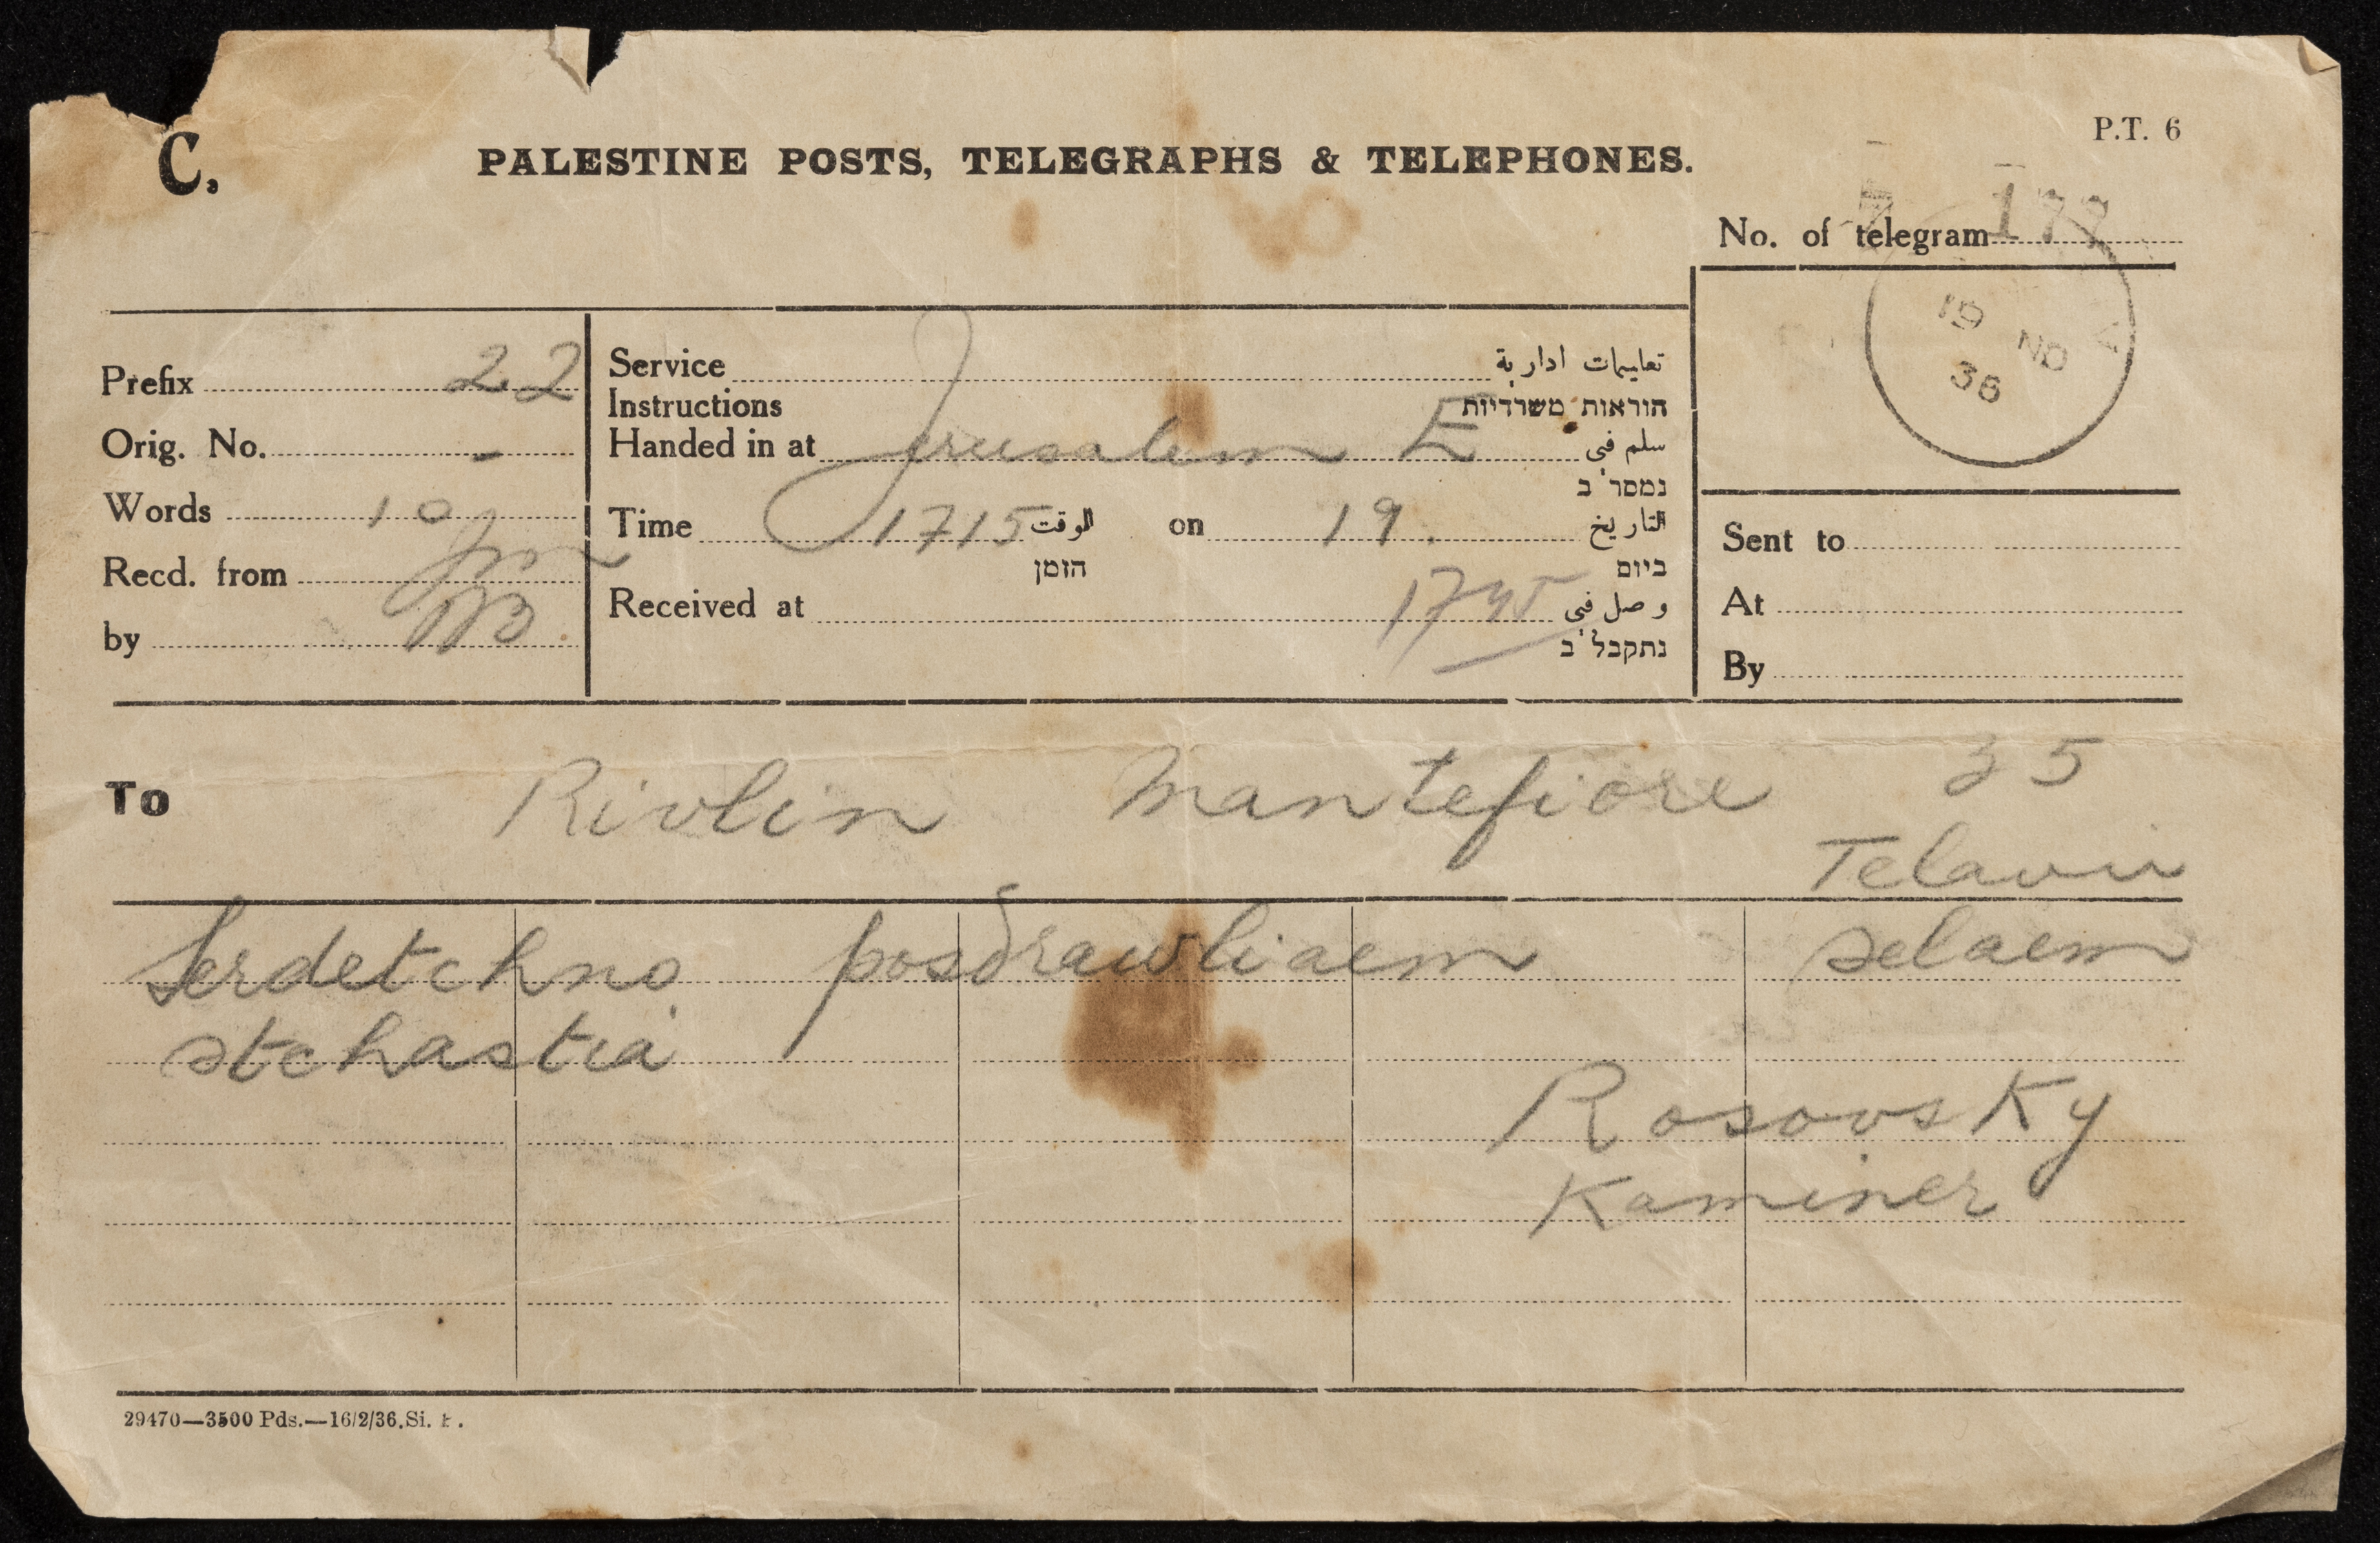 C.
PALESTINE POSTS, TELEGRAPHS & TELEPHONES.
P.T. 6
No. of telegram 177
19 NO
36
Prefix 22
Orig. No. -
Words 10
Recd. from Jm
by
Service تعليمات ادارية
Instructions הוראות משרדיות
Handed in at Jerusalem E سلم في
נמסר ב
Time 1715 الوقت on 19. التاريخ
הזמן ביום
Received at 1745 وصل في
נתקבל ב
Sent to
At
By
To Rivlin Mantefiore 35
Telaviv
Serdetchno posdrawliaem selaem
stchastia
Rosovsky
Kaminer
29470—3500 Pds.—16/2/36.Si.